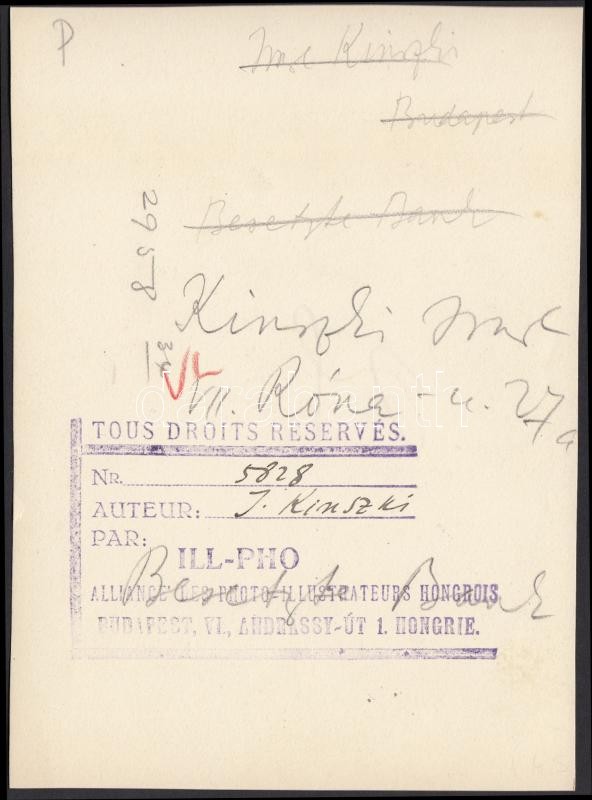 P
Imre Kinszki
Budapest
Besetzte Bank
2958
34
Kinszki Imre
VII. Róna-u. 27/a
TOUS DROITS RÉSERVÉS.
NR. 5828
AUTEUR: J. Kinszki
PAR:
ILL-PHO
ALLIANCE DES PHOTO-ILLUSTRATEURS HONGROIS
BUDAPEST, VI., ANDRÁSSY-ÚT 1. HONGRIE.
Besetzte Bank